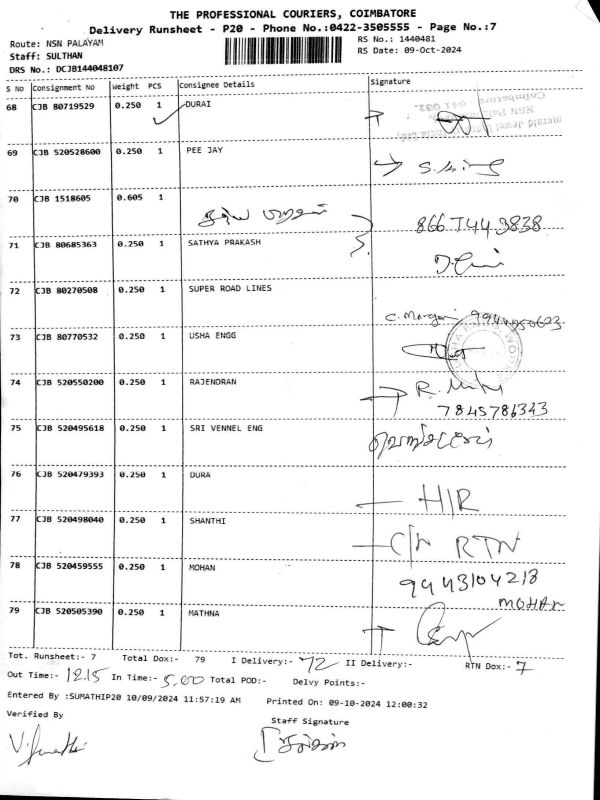 THE PROFESSIONAL COURIERS, COIMBATORE
Delivery Runsheet - P20 - Phone No.:0422-3505555 - Page No.:7
Route: NSN PALAYAM
RS No.: 1440481
Staff: SULTHAN
RS Date: 09-Oct-2024
DRS No.: DCJB144048107
S No Consignment No Weight PCS Consignee Details Signature
68 CJB 80719529 0.250 1 DURAI
69 CJB 520528600 0.250 1 PEE JAY
70 CJB 1518605 0.605 1
866 744 3838
71 CJB 80685363 0.250 1 SATHYA PRAKASH
72 CJB 80270508 0.250 1 SUPER ROAD LINES
73 CJB 80770532 0.250 1 USHA ENGG
74 CJB 520550200 0.250 1 RAJENDRAN
7845786343
75 CJB 520495618 0.250 1 SRI VENNEL ENG
76 CJB 520479393 0.250 1 DURA
H/R
77 CJB 520498040 0.250 1 SHANTHI
RTN
78 CJB 520459555 0.250 1 MOHAN
9443104213
MOHAN
79 CJB 520505390 0.250 1 MATHNA
Tot. Runsheet:- 7 Total Dox:- 79 I Delivery:- 72 II Delivery:- RTN Dox:- 7
Out Time:- 12.15 In Time:- 5.00 Total POD:- Delvy Points:-
Entered By :SUMATHIP20 10/09/2024 11:57:19 AM Printed On: 09-10-2024 12:00:32
Verified By Staff Signature